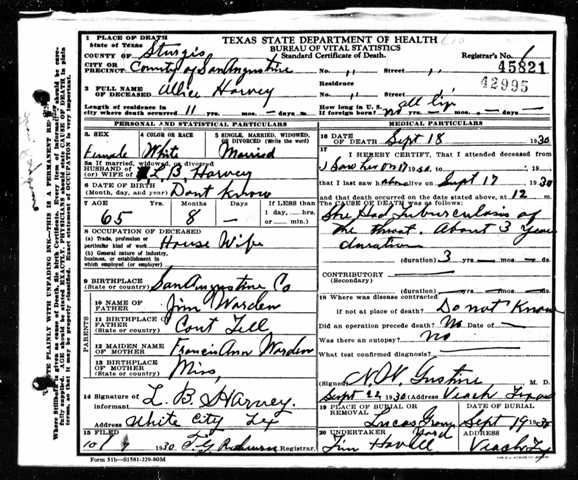 1 PLACE OF DEATH
State of Texas
TEXAS STATE DEPARTMENT OF HEALTH
BUREAU OF VITAL STATISTICS
Standard Certificate of Death.
COUNTY OF Sturgis
Registrar's No. 1
45821
CITY OR PRECINCT County of San Augustine
No. 11 Street,
42995
2 FULL NAME OF DECEASED Allice Harvey
Residence No. 11 Street,
Length of residence in city where death occurred 11 yrs. — mos. — days
How long in U.S. if foreign born? all life
PERSONAL AND STATISTICAL PARTICULARS
3. SEX
4 COLOR OR RACE
5 SINGLE, MARRIED, WIDOWED, DIVORCED (Write the word)
Female White Married
5a If married, widowed, or divorced
HUSBAND OF (or) WIFE OF L B Harvey
6 DATE OF BIRTH (Month, day, and year) Dont Know
7 AGE Years Months Days If LESS than 1 day, ___ hrs. or ___ min.
65 8 —
8 OCCUPATION OF DECEASED
(a) Trade, profession or particular kind of work House Wife
(b) General nature of industry, business, or establishment in which employed (or employer)
9 BIRTHPLACE (State or country) San Augustine Co
PARENTS
10 NAME OF FATHER Jim Warden
11 BIRTHPLACE OF FATHER (State or country) Cont Tell
12 MAIDEN NAME OF MOTHER Francis Ann Warden
13 BIRTHPLACE OF MOTHER (State or country) Miss,
14 Signature of informant L. B. Harvey
Address White City Tex
15 FILED 10/ 1930. Registrar.
Form 31b-S1581-229-80M
MEDICAL PARTICULARS
16 DATE OF DEATH Sept 18 1930
17 I HEREBY CERTIFY, That I attended deceased from
I Saw her on 17 1930, to 19
that I last saw h alive on Sept 17 1930
and that death occurred on the date stated above, at 12 m.
The CAUSE OF DEATH was as follows:
She Had Tuberculosis of
the throat. About 3 year
duration
(duration) 3 yrs. mos. ds.
CONTRIBUTORY (Secondary)
(duration) yrs. mos. ds.
18 Where was disease contracted
if not at place of death? Do not Know
Did an operation precede death? No Date of —
Was there an autopsy? No
What test confirmed diagnosis?
(Signed) M. D.
Sept 22, 1930 (Address) Texas
19 PLACE OF BURIAL OR REMOVAL
DATE OF BURIAL
Sept 19 1930
20 UNDERTAKER
ADDRESS
Jim Tex